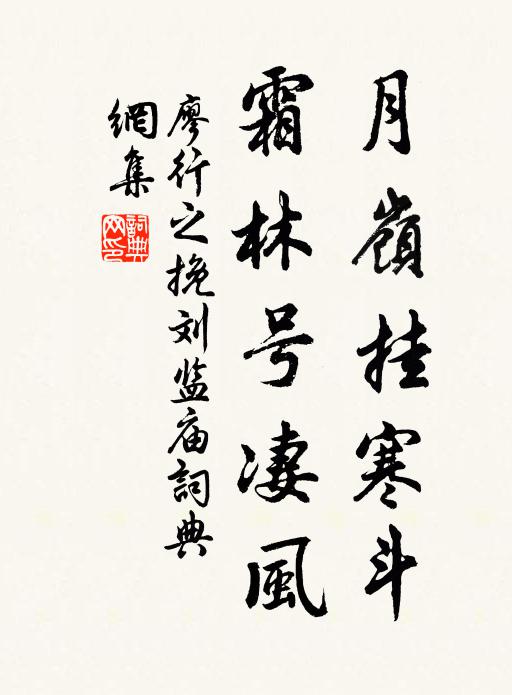 月嶺挂寒斗
霜林号凄風
廖行之挽刘监庙詞典
網集
詞典
网印